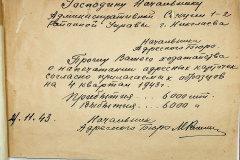 Господину Начальнику
Административной Секции 1-2
Районной Управы г. Николаева
Начальника
Адресного Бюро
Прошу Вашего ходатайства
о напечатании адресных карточек
согласно прилагаемых образцов
на 4 квартал 1943 г.
Прибытия 6000 шт.
Выбытия 6000 "
4/11.43. Начальник
Адресного Бюро